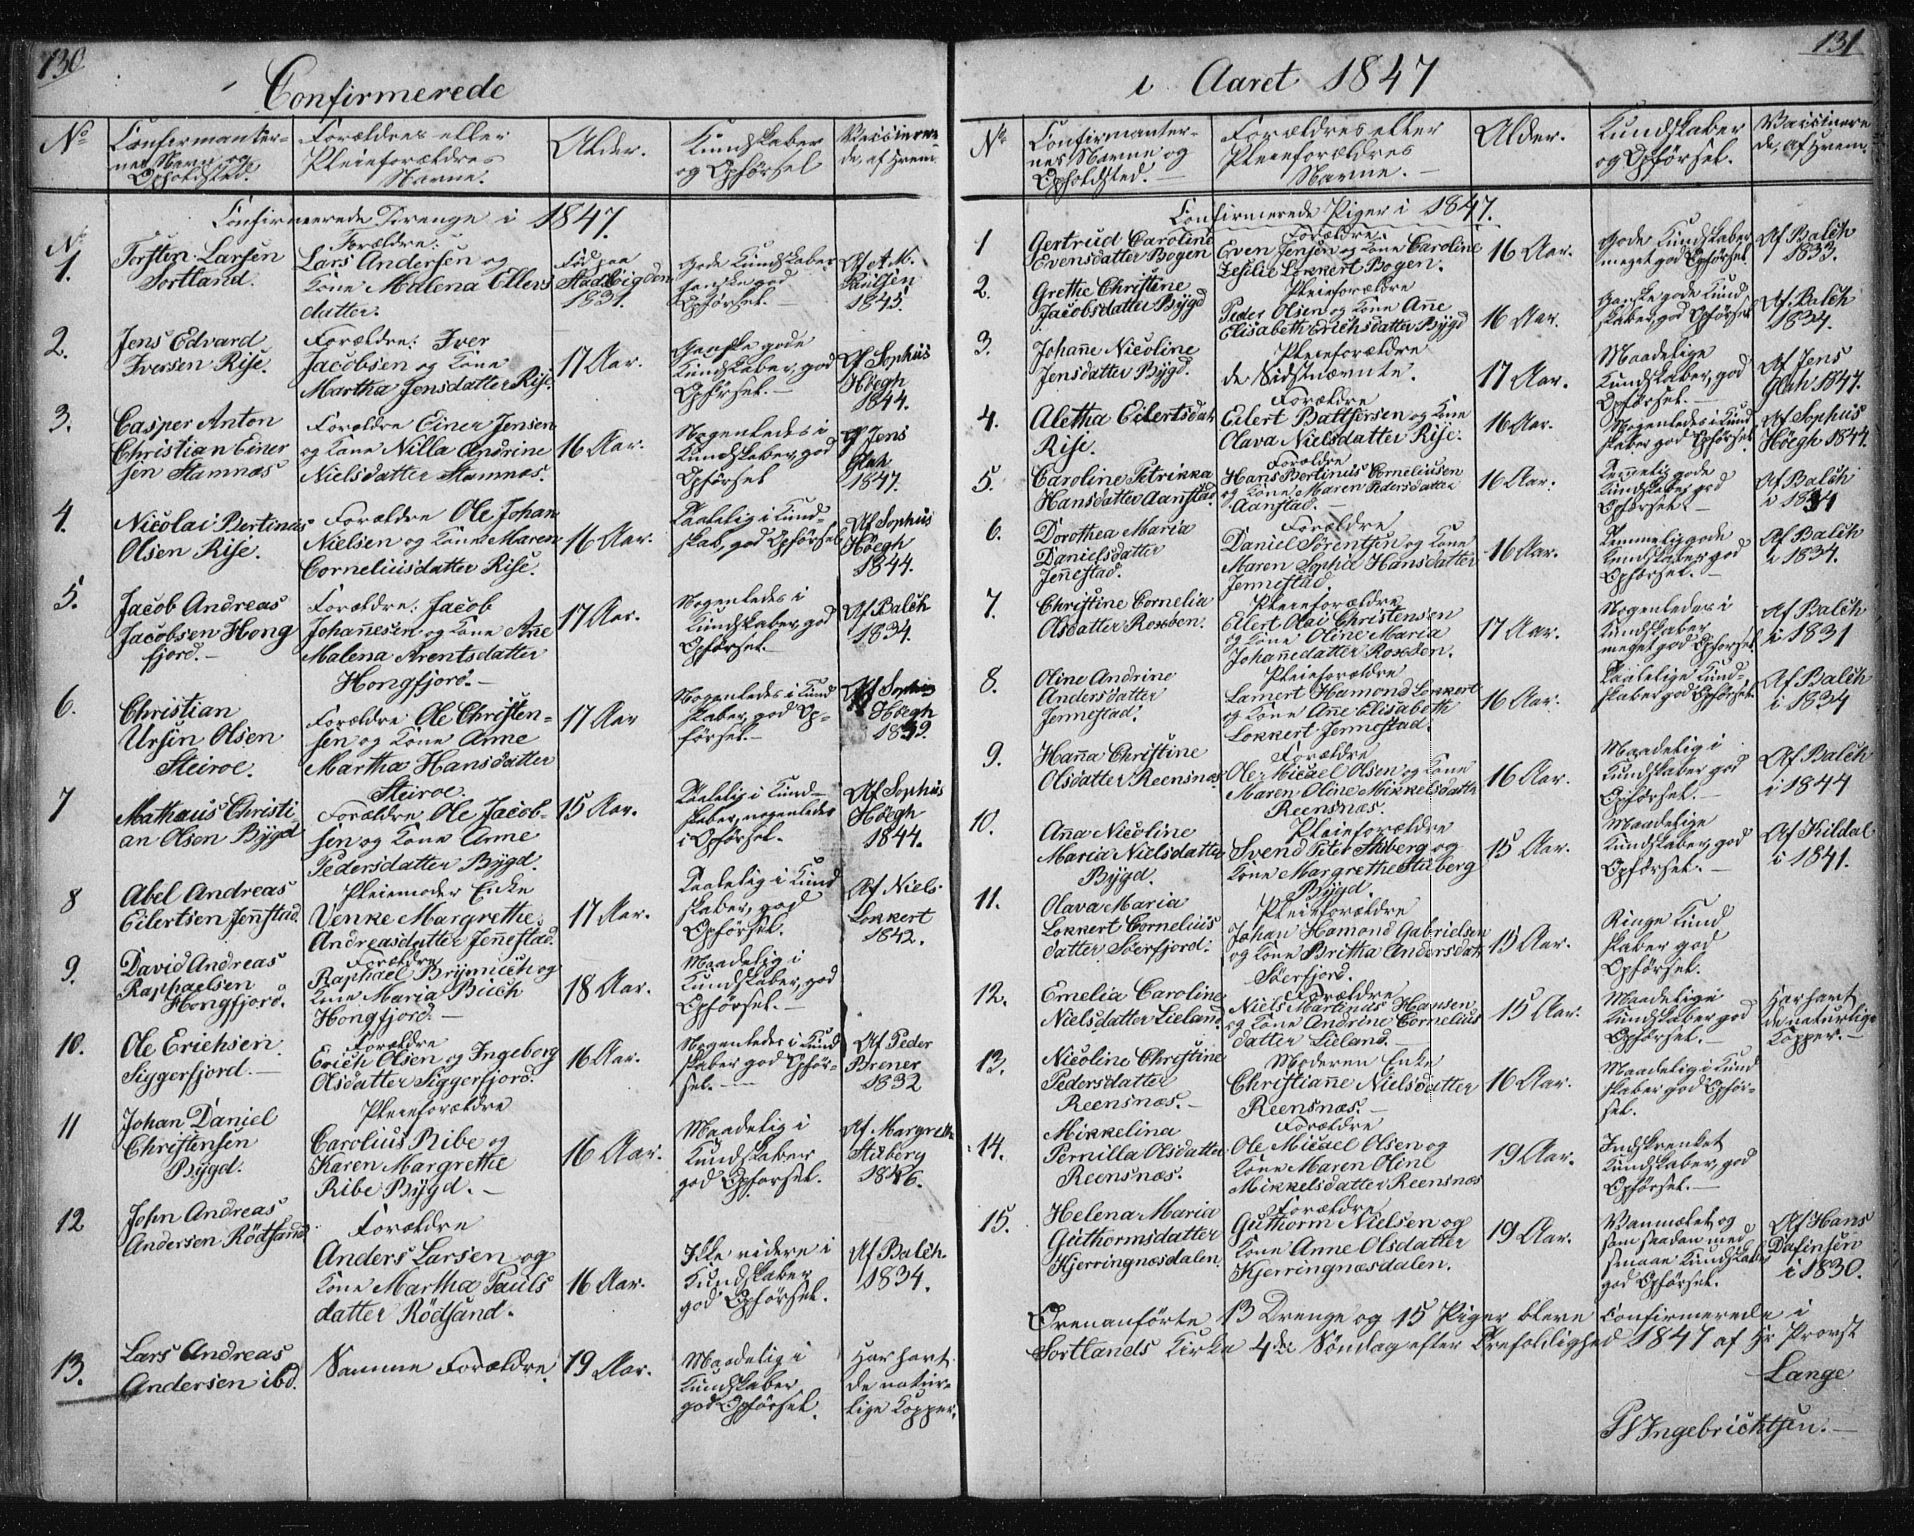 130
Confirmerede
No
Confirmanter-
nes Navn og
Opholdsted.
Forældres eller
Pleieforældres
Navne.
Alder.
Kundskaber
og Opførsel
Vaccinere-
de, af hvem.
Confirmerede Drenge i 1847.
No
1.
Torsten Larsen
Sortland.
Forældre:
Lars Andersen og
Kone Malena Ellers
datter.
Fød paa
Hadselvigden
1831.
Gode Kundskaber
ganske god
Opførsel.-
Af A. K.
Paulsen
1845.
2.
Jens Edvard
Iversen Rise.
Forældre: Iver
Jacobsen og Kone
Martha Jensdatter Rise.
17 Aar.
Ganske gode
Kundskaber, god
Opførsel.-
Af Sophus
Høegh
1844.
3.
Casper Anton
Christian Einer
sen Stamnæs
Forældre Einer Jensen
og Kone Nilla Andrine
Nielsdatter Stamnæs.
16 Aar.
Nogenledes i
Kundskaber, god
Opførsel
Af Jens
Glah
1847.
4.
Nicolai Bertinus
Olsen Rise.
Forældre Ole Johan
Nielsen og Kone Maren
Corneliusdatter Rise.
16 Aar.
Taalelig i Kund-
skab, god Opførsel
Af Sophus
Høegh
1844.
5.
Jacob Andreas
Jacobsen Hong
fjord.-
Forældre: Jacob
Johannesen og Kone Anne
Malena Arentsdatter
Hongfjord.-
17 Aar.
Nogenledes i
Kundskaber, god
Opførsel.-
Af Balch
1834.
6.
Christian
Ursin Olsen
Steiroe.
Forældre Ole Christen-
sen og Kone Anne
Martha Hansdatter
Steiroe.
17 Aar
Nogenledes i Kund
skaber, god Op-
førsel.-
Af Sophus
Høegh
1839.
7
Mathæus Christi
an Olsen Bygd
Forældre Ole Jacob-
sen og Kone Anne
Pedersdatter Bygd.
15 Aar.
Taalelig i Kund-
skaber, nogenledes
i Opførsel.
Af Sophus
Høegh
1844.
8
Abel Andreas
Eilertsen Jennstad.
Pleiemoder Enke
Venke Margrethe
Andreasdatter Jennestad.
17 Aar.
Taalelig i Kund
skaber, god
Opførsel.
Af Niels
Lokkert
1842.
9.
David Andreas
Raphaelsen
Hongfjord.
Forældre
Raphael Brynnich og
Kone Maria Buch
Hongfjord.-
18 Aar.
Maadelig i
Kundskaber, god
Opførsel.-
10.
Ole Erichsen
Siggerfjord.-
Forældre
Erich Olsen og Ingeborg
Olsdatter Siggerfjord.
16 Aar.
Nogenledes i Kund
skaber god Opfør-
sel.-
Af Peder
Brener
1832
11
Johan Daniel
Christensen
Bygd.
Pleieforældre
Carolius Ribe og
Karen Margrethe
Ribe Bygd.-
16 Aar.
Maadelig i
Kundskaber
god Opførsel.
Af Margrethe
Stuberg
1846.
12
John Andreas
Andersen Rödsand
Forældre
Anders Larsen og
Kone Martha Pauls
datter Rödsand.
16 Aar.
Ikke videre i
Kundskaber
god Opførsel.
Af Balch
1834.
13.
Lars Andreas
Andersen ibd.
Samme Forældre.
19 Aar.
Maadelig i
Kundskaber
god Opførsel.
Har havt
de natur-
lige Kopper.
131
i Aaret 1847
No
Confirmanter-
nes Navne og
Opholdsted.-
Forældres eller
Pleieforældres
Navne.-
Alder.
Kundskaber
og Opførsel.
Vaccinere
de, af hvem.
Confirmerede Piger i 1847.
1
Gertrud Caroline
Evensdatter Bogen
Forældre.
Even Jensen og Kone Caroline
Zesilie Lokkert Bogen.
16 Aar.
Gode Kundskaber
meget god Opførsel.
Af Balch
1833.
2.
Grethe Christine
Jacobsdatter Bygd
Pleieforældre
Peder Olsen og Kone Anne
Elisabeth Erichsdatter Bygd
16 Aar.
Ganske gode Kund
skaber, god Opførsel
Af Balch
1834.
3.
Johanne Nicoline
Jensdatter Bygd.
Pleieforældre
de Sidstnævnte.
17 Aar.
Maadelige
Kundskaber, god
Opførsel.-
Af Jens
Glah 1847.
4.
Aletha Eilertsdatr
Rise.
Forældre
Eilert Baltsersen og Kone
Olava Nielsdatter Rise.
16 Aar.
Nogenledes i Kund
skaber god Opførsel.
Af Sophus
Høegh 1844.
5.
Caroline Petrikka
Hansdatter Aanstad.
Forældre
Hans Bertinus Corneliusen
og Kone Maren Pedersdatter
Aanstad.
16 Aar.
Temmelig gode
Kundskaber god
Opførsel.-
Af Balch
i 1834
6.
Dorothea Maria
Danielsdatter
Jennestad.
Forældre
Daniel Sørentsen og Kone
Maren Sophia Hansdatter
Jennestad
16 Aar.
Temmelig gode
Kundskaber, god
Opførsel.-
Af Balch
i 1834.
7.
Christine Cornelia
Olsdatter Roksøen.
Pleieforældre
Eilert Olai Christensen
og Kone Oline Maria
Johannedatter Roksøen.
17 Aar.
Nogenledes i
Kundskaber
meget god Opførsel.
Af Balch
i 1831
8.
Oline Andrine
Andersdatter
Jennestad.
Pleieforældre
Lamert Hamond Lokkert
og Kone Anne Elisabeth
Lokkert Jennestad.
16 Aar.
Taalelige Kund-
skaber god Opførsel.
Af Balch
i 1834
9.
Hanna Christine
Olsdatter Reensnæs.
Forældre
Ole Micael Olsen og Kone
Maren Oline Mikkelsdattr
Reensnæs.
16 Aar.
Maadelig i
Kundskaber god
Opførsel.-
Af Balch
i 1844
10.
Anna Nicoline
Maria Nielsdatter
Bygd.
Pleieforældre
Svend Peter Stuberg og
Kone Margrethe Stuberg
Bygd.
15 Aar.
Maadelige
Kundskaber, god
Opførsel.-
Af Kildal
i 1841.
11.
Olava Maria
Lokkert Cornelius
datter Søerfjord.
Pleieforældre
Johan Hamond Gabrielsen
og Kone Britha Andersdatr
Söerfjord.
15 Aar.
Ringe Kund
skaber god
Opførsel.
12.
Emelia Caroline
Nielsdatter Lieland.
Forældre
Niels Martinus Hansen
og Kone Andrine Cornelius
datter Lieland.-
15 Aar.
Maadelige
Kundskaber god
Opførsel.-
Har havt
de naturlige
Kopper.-
13.
Nicoline Christine
Pedersdatter
Reensnæs.-
Moderen Enke
Christianne Nielsdatter
Reensnæs.-
16 Aar.
Maadelig i Kund
skaber god Opfør-
sel.
14.
Mikkelina
Pernilla Olsdatter
Reensnæs.
Forældre
Ole Micael Olsen og
Kone Maren Oline
Mikkelsdatter Reensnæs
19 Aar.
Indskrenket
Kundskaber, god
Opførsel.-
15.
Helena Maria
Guthormsdatter
Kjerringnæsdalen.
Forældre
Guthorm Nielsen og
Kone Anne Olsdatter
Kjerringnæsdalen.
19 Aar.
Vanmælet og
som saadan med
smaae Kundskaber
god Opførsel.
Af Hans
Dafinsen
i 1830.
Ovenanførte 13 Drenge og 15 Piger bleve Confirmerede i
Sortlands Kirke 4de Søndag efter Trefoldighed 1847 af Hr Provst
Lange
PVIngebrichtsen.-